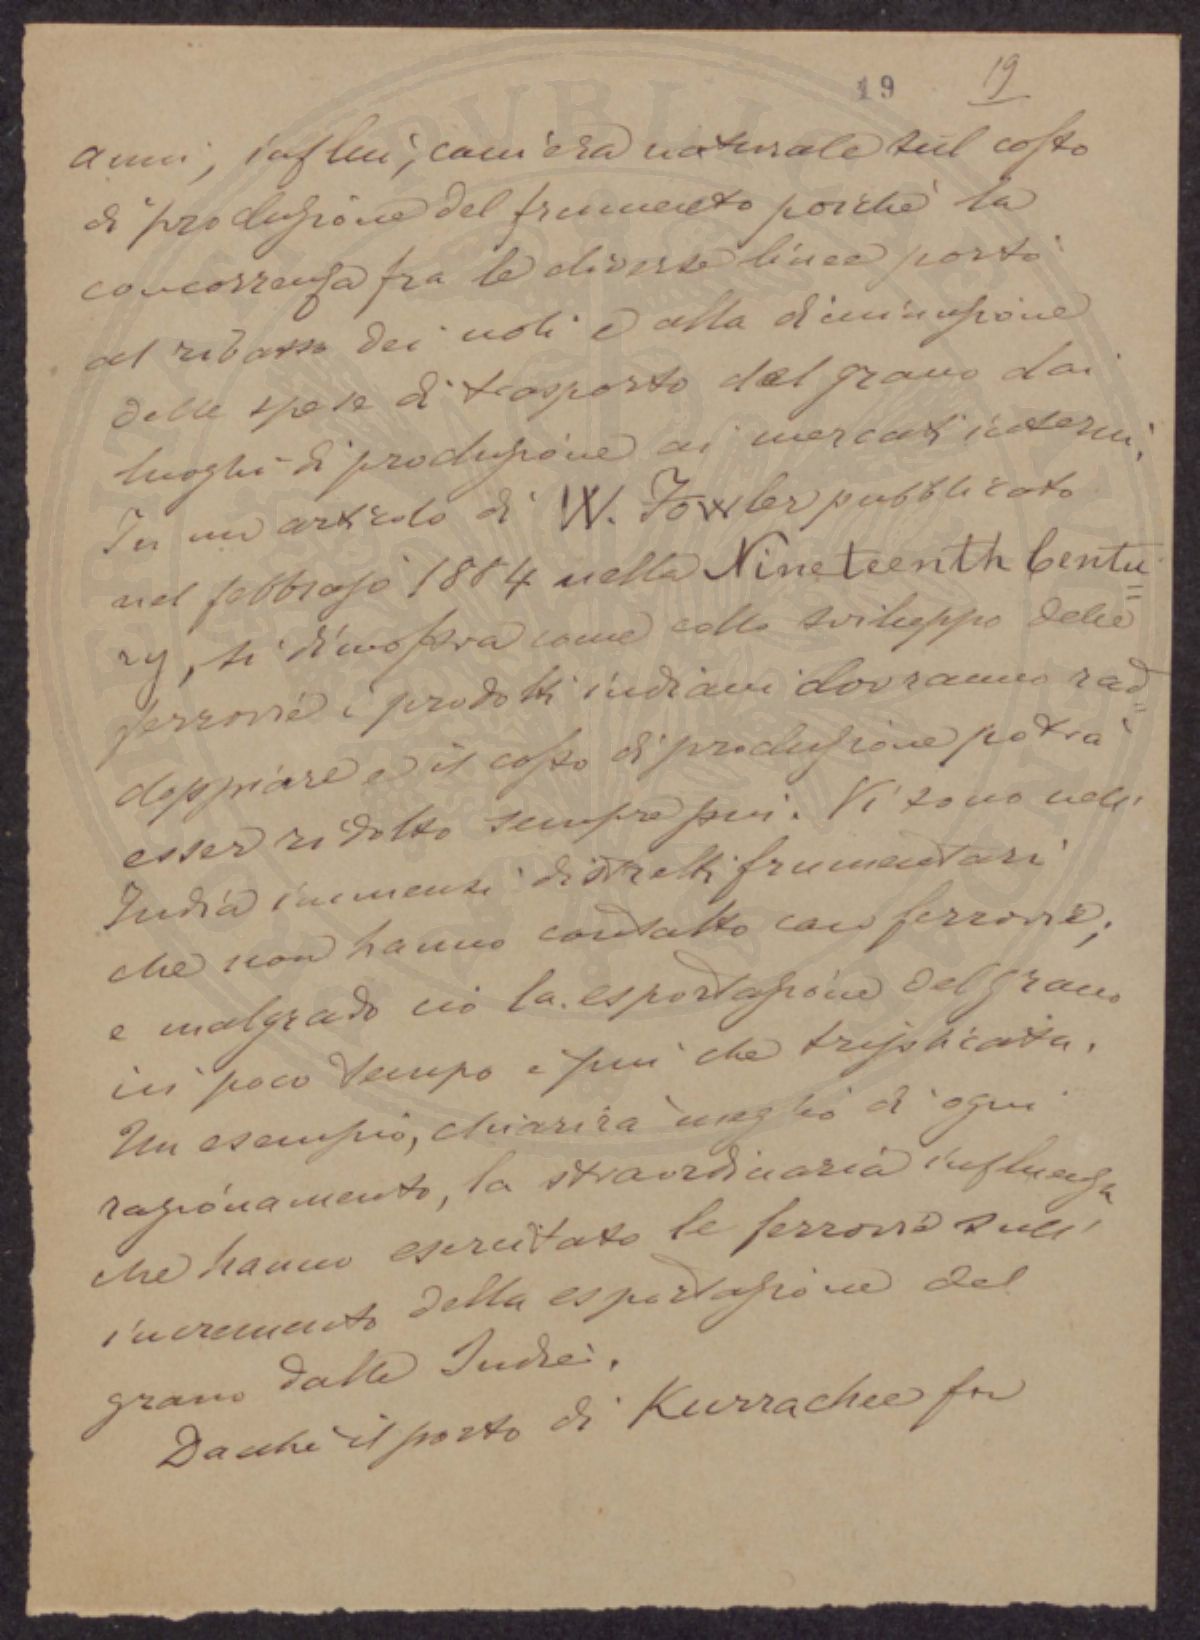 19 19
anni, influì, com'era naturale sul costo
di produzione del frumento poichè la
concorrenza fra le diverse linee portò
al ribasso dei noli e alla diminuzione
delle spese di trasporto del grano dai
luoghi di produzione ai mercati interni.
In un articolo di W. Fowler pubblicato
nel febbrajo 1884 nella Nineteenth Centu=
ry, si dimostra come collo sviluppo delle
ferrovie i prodotti indiani dovranno rad=
doppiare e il costo di produzione potrà
esser ridotto sempre più. Vi sono nell'
India immensi distretti frumentari
che non hanno contatto con ferrovie;
e malgrado ciò la esportazione del grano
in poco tempo è più che triplicata.
Un esempio, chiarirà meglio di ogni
ragionamento, la straordinaria influenza
che hanno esercitato le ferrovie sull'
incremento della esportazione del
grano dalle Indie.
Dacchè il porto di Kurrachee fu